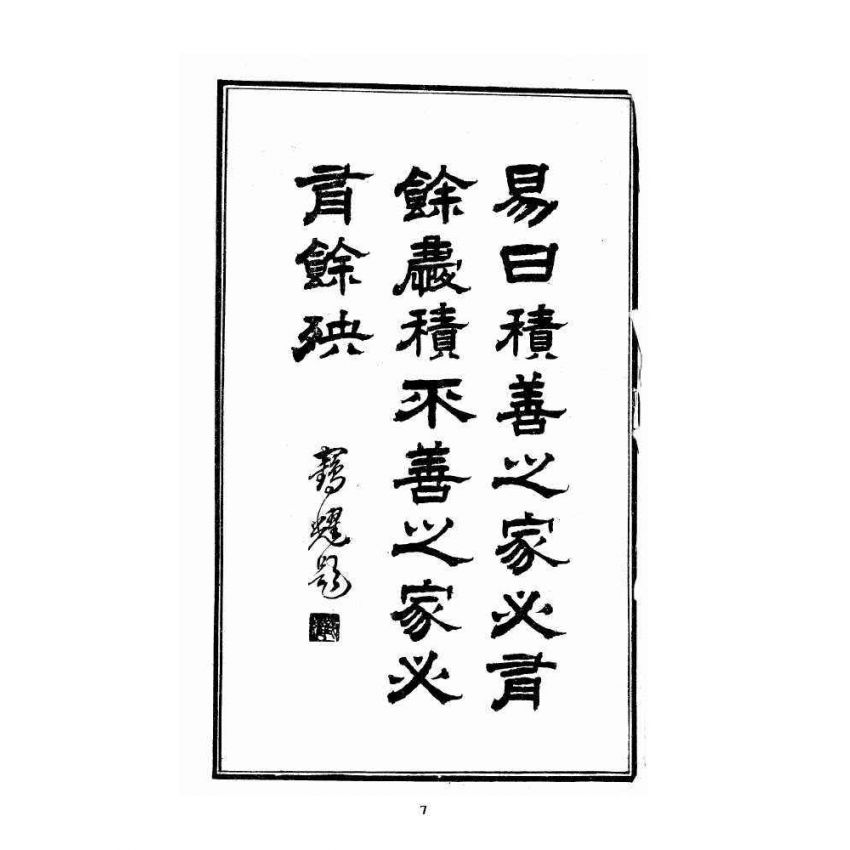 易曰積善之家必有
餘慶積不善之家必
有餘殃
鶴燿題
7